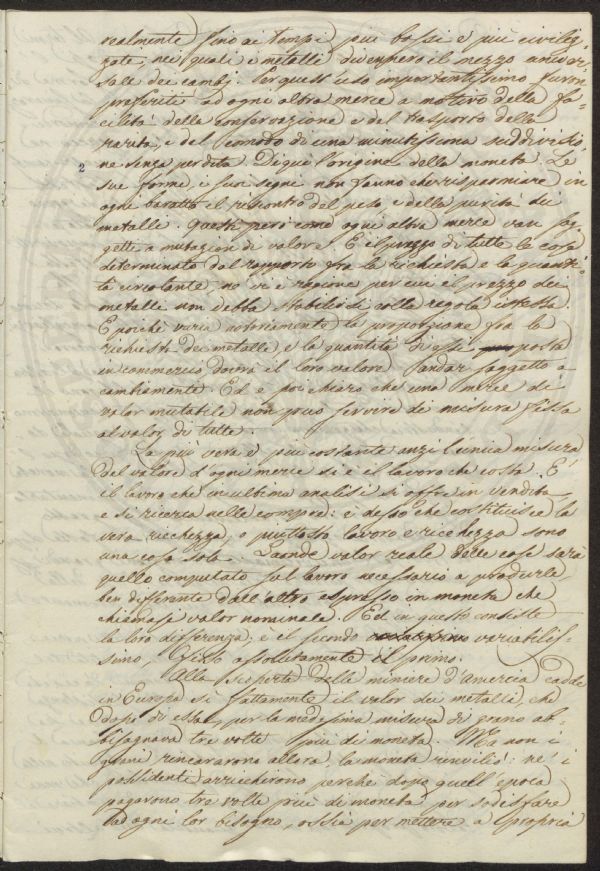 realmente fino ai tempi piu bassi e piu civiliz-
zate, nei quali i metalli divennero il mezzo univer-
sale dei cambj. Per quest'uso importantissimo furon
preferiti ad ogni altra merce a motivo della fa-
cilità della conservazione e del trasporto della
rarità, e del comodo di una minutissima suddivisio-
2 ne senza perdita. Di qui l'origine della moneta. Le
sue forme, i suoi segni non fanno che risparmiare in
ogni baratto il riscontro del peso, e della purità dei
metalli. Questi però come ogni altra merce van sog-
getti a mutazion di valore. E il prezzo di tutte le cose
determinato dal rapporto fra la richiesta e la quanti-
tà circolante, nè vi è ragione per cui il prezzo dei
metalli non debba stabilirsi colla regola istessa.
E poichè varia notoriamente la proporzione fra la
richiesta dei metalli, e la quantità di essi posta
in commercio dovrà il loro valore andar soggetto a
cambiamenti. Ed è poi chiaro che una merce di
valor mutabile non può servire di misura fissa
al valor di tutte.
La più vera e più costante anzi l'unica misura
del valore d'ogni merce si è il lavoro che costa. E'
il lavoro che in ultima analisi si offre in vendita
e si ricerca nelle compre: è desso che costituisce la
vera ricchezza, o piuttosto lavoro e ricchezza sono
una cosa sola. Laonde valor reale delle cose sarà
quello computato sul lavoro necessario a produrle,
ben differente dall'altro espresso in moneta che
chiamasi valor nominale. Ed in questo consiste
la loro differenza, è il secondo variabilis-
simo, fisso assolutamente il primo.
Alla scoperta delle miniere d'America cadde
in Europa sì fattamente il valor dei metalli, che
dopo di essa per la medesima misura di grano ab-
bisognava tre volte più di moneta. Ma non i
grani rincararono allora, la moneta rinviliò: nè i
possidenti arricchirono perchè dopo quell'epoca
pagarono tre volte più di moneta per sodisfare
ad ogni lor bisogno, ossia per mettere a propria